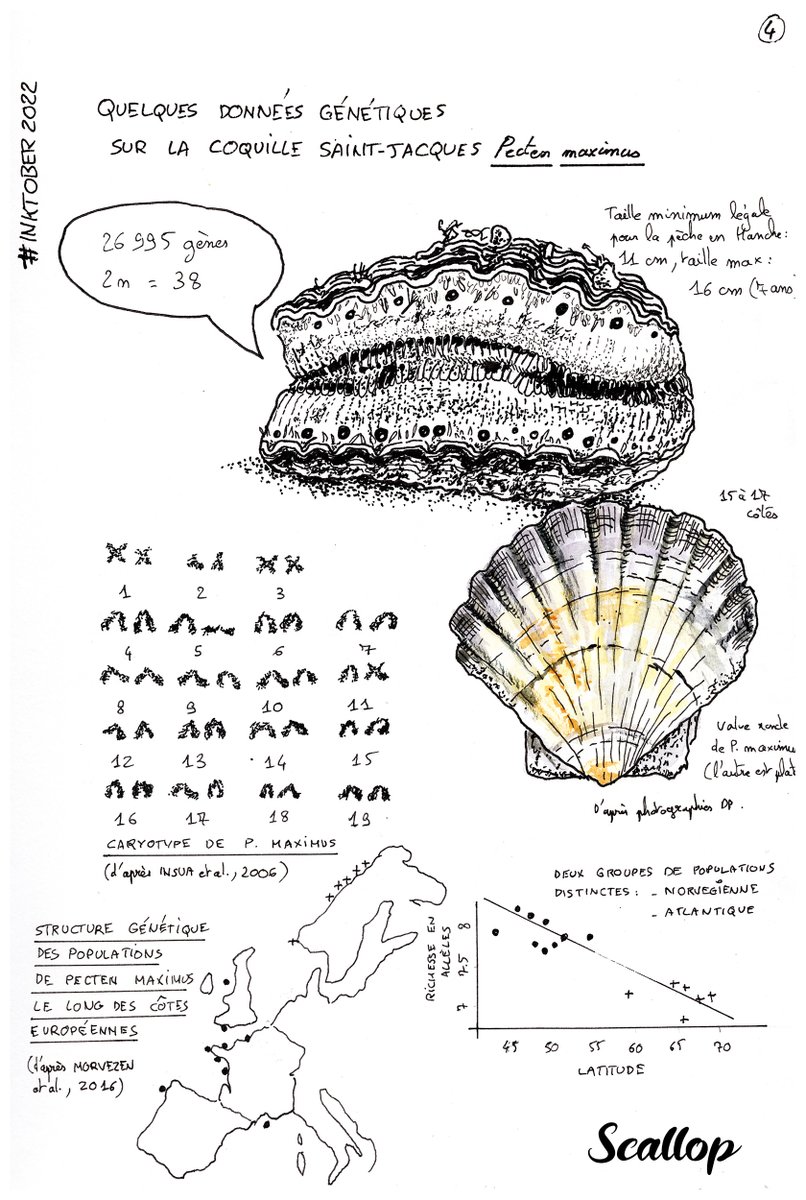 4
#INKTOBER 2022
QUELQUES DONNÉES GÉNÉTIQUES
SUR LA COQUILLE SAINT-JACQUES Pecten maximus
26 995 gènes
2n = 38
Taille minimum légale
pour la pêche en Manche:
11 cm, taille max:
16 cm (7 ans
15 à 17
côtes
1 2 3
4 5 6 7
8 9 10 11
12 13 14 15
16 17 18 19
CARYOTYPE DE P. MAXIMUS
(d'après INSUA et al., 2006)
Valve ronde
de P. maximus
(l'autre est plat
D'après photographies DP.
STRUCTURE GÉNÉTIQUE
DES POPULATIONS
DE PECTEN MAXIMUS
LE LONG DES CÔTES
EUROPÉENNES
(d'après MORVEZEN
et al., 2016)
DEUX GROUPES DE POPULATIONS
DISTINCTES: - NORVEGIËNNE
- ATLANTIQUE
RICHESSE EN
ALLÈLES
8
7.5
7
45 50 55 60 65 70
LATITUDE
Scallop